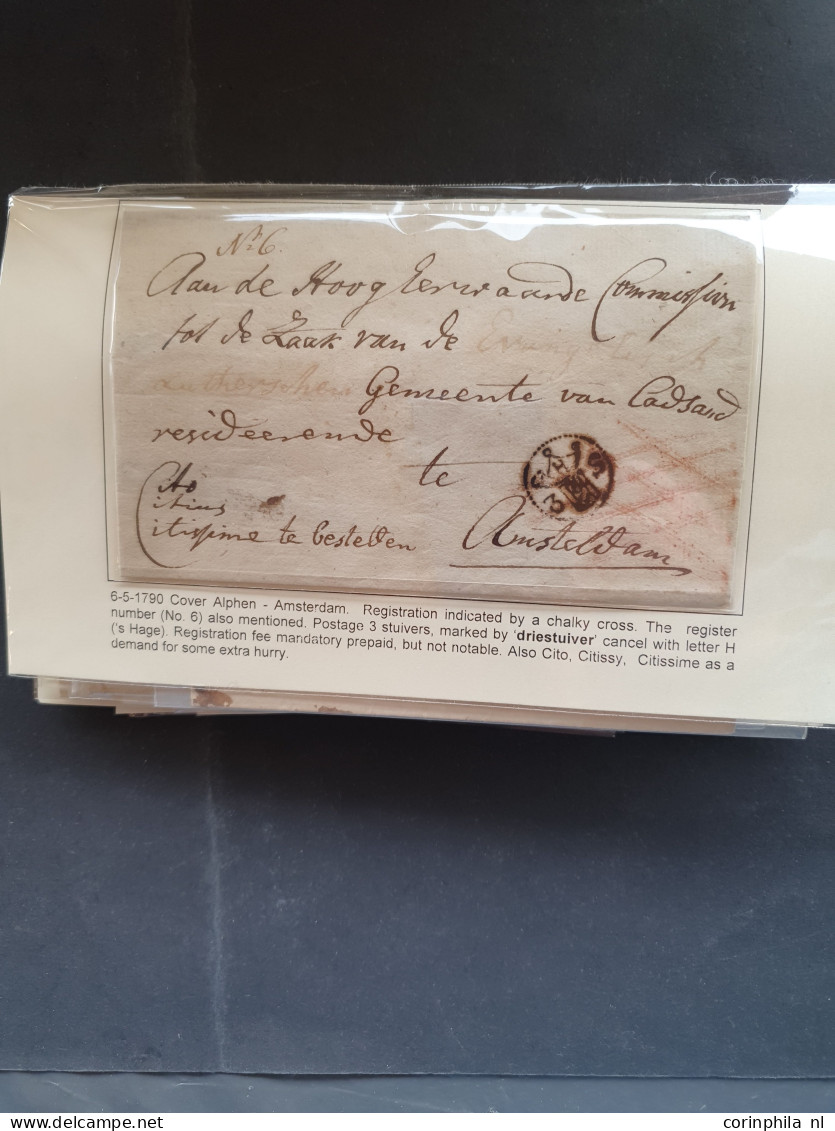 No. 6.
Aan de Hoog Eerwaarde Commissien
tot de Zaak van de Evangelisch
Lutherschen Gemeente van Cadsand
resideerende
te
3 St
Cito
itius
itissime te bestellen Amsteldam
6-5-1790 Cover Alphen - Amsterdam. Registration indicated by a chalky cross. The register
number (No. 6) also mentioned. Postage 3 stuivers, marked by 'driestuiver' cancel with letter H
('s Hage). Registration fee mandatory prepaid, but not notable. Also Cito, Citissy, Citissime as a
demand for some extra hurry.
www.delcampe.net
corinphila nl